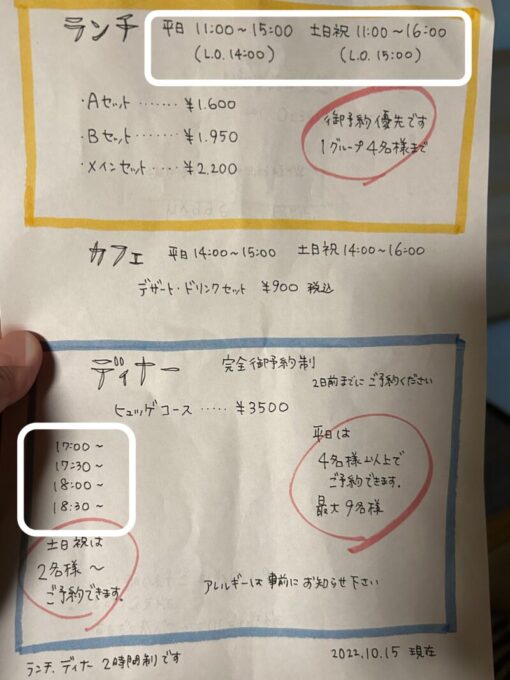 ランチ 平日 11:00～15:00 土日祝 11:00～16:00
(L.O. 14:00) (L.O. 15:00)
・Aセット……¥1.600
・Bセット……¥1.950
・メインセット……¥2.200
御予約優先です
1グループ4名様まで
カフェ 平日 14:00～15:00 土日祝 14:00～16:00
デザート・ドリンクセット ¥900 税込
ディナー 完全御予約制
2日前までにご予約ください
ヒュッゲコース……¥3500
17:00～
17:30～
18:00～
18:30～
平日は
4名様以上で
ご予約できます.
最大9名様
土日祝は
2名様～
ご予約できます.
アレルギーは事前にお知らせ下さい
ランチ、ディナー 2時間制です
2022.10.15 現在